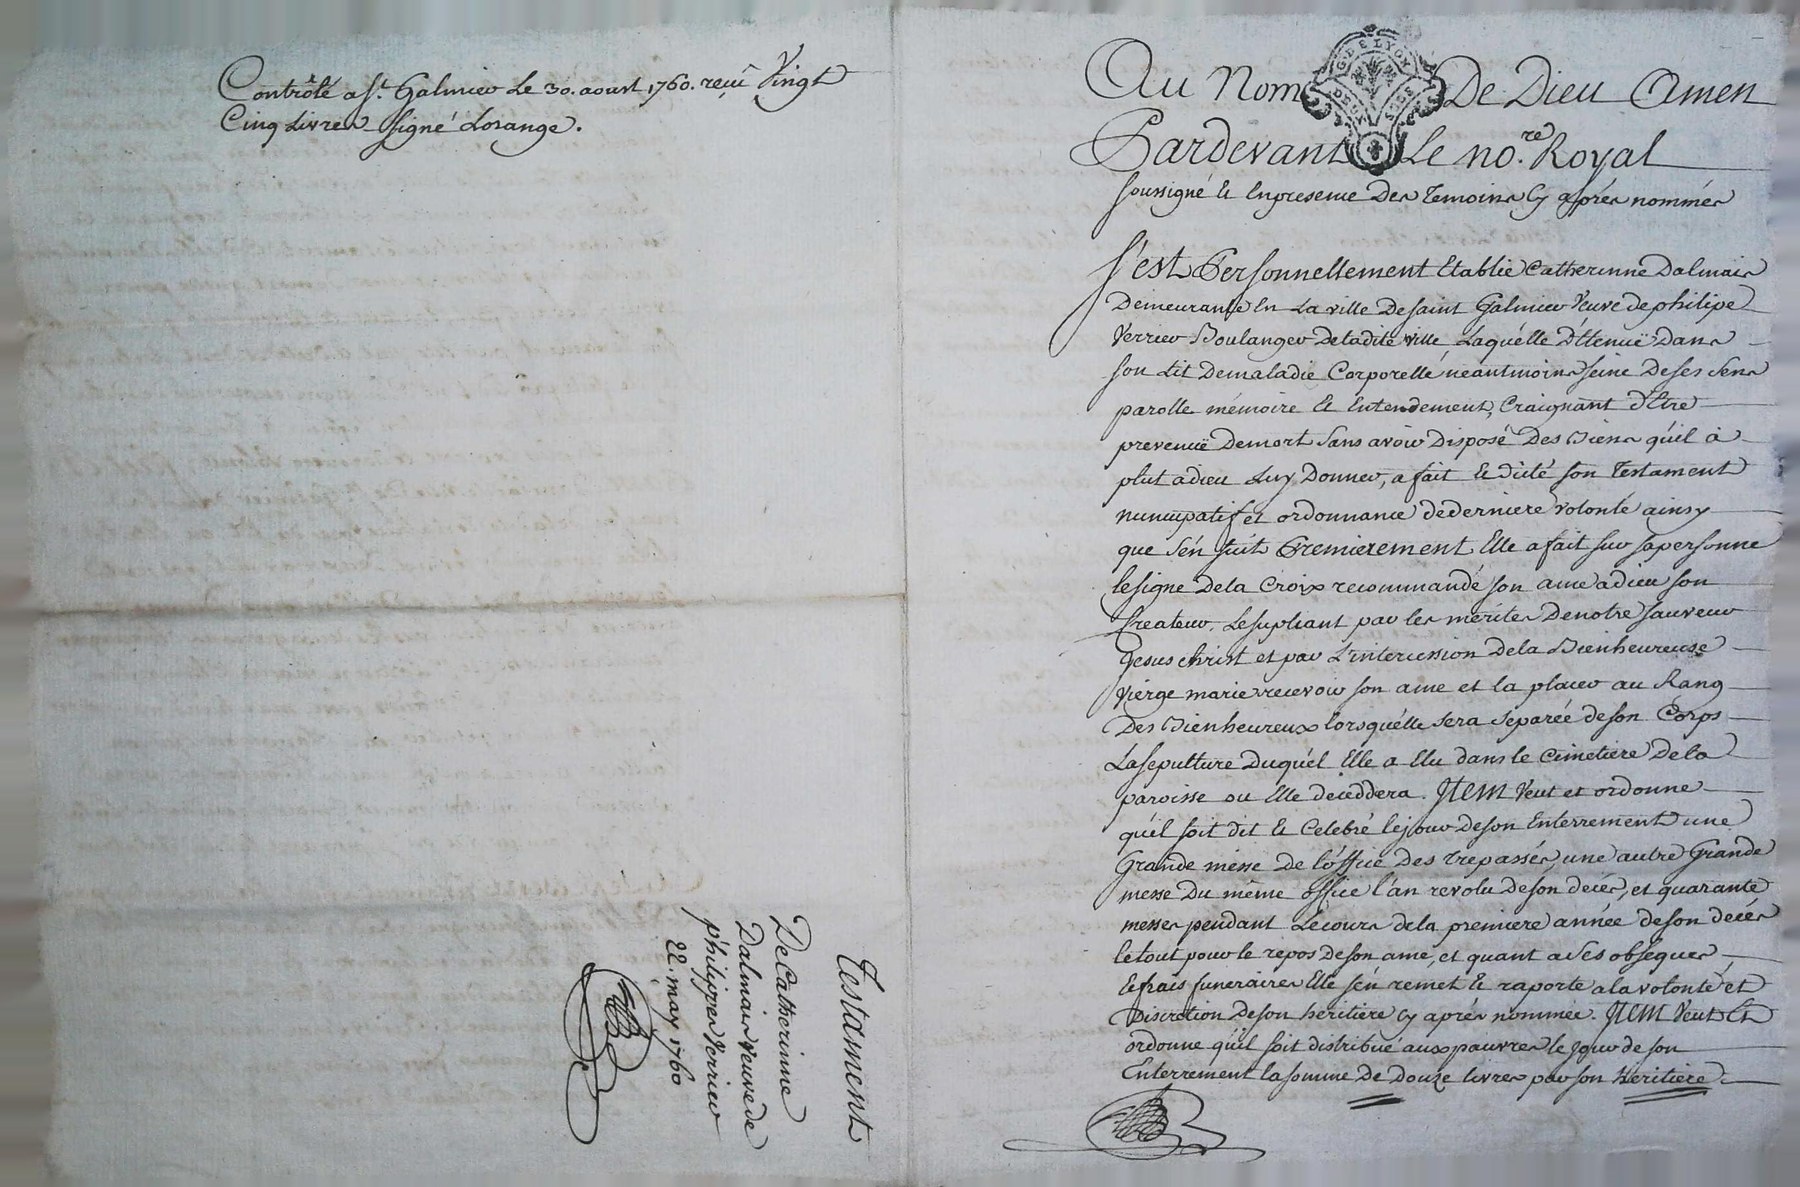 Contrôlé a St. Galmier Le 30. aoust 1760. reçu Vingt
Cinq Livres signé Lorange.
Testament
De Catherinne
Dalmais veuve de
philippes Verrier
22. may 1760
Au Nom De Dieu Amen
G. DE LYON
DEUX SOLS
Pardevant Le no.re Royal
soussigné & En presence Des Temoins Cy aprés nommés
S'est Personnellement Etablie Catherinne Dalmais
Demeurante En La ville De saint Galmier Veuve de philipe
Verrier Boulanger De ladite ville, Laquélle détenuë Dans
son Lit De maladie Corporelle, néantmoins seine De ses Sens
parolle mémoire & Entendement, Craignant d'Etre
prevenuë De mort sans avoir Disposé Des Biens qu'il à
plut a dieu Luy Donner, a fait & dicté son Testament
nuncupatif et ordonnance de derniere volonté ainsy
que s'en suit Premierement Elle a fait sur sa personne
le signe De la Croix recommandé son ame a dieu son
Createur, Le supliant par les mérites De notre sauveur
Jesus christ et par L'intercession De la Bienheureuse
Vierge marie recevoir son ame et la placer au Rang
Des Bienheureux lorsqu'élle sera séparée de son Corps
La sepulture Duquél Elle a Elu dans le Cimetiere De la
paroisse ou Elle deceddera. Item Veut et ordonne
qu'il soit dit & Celebré le jour de son Enterrement une
Grande messe De l'office Des trepassés, une autre Grande
messe Du même office l'an revolu De son decés, et quarante
messes pendant Le cours de la premiere année de son decés
le tout pour le repos De son ame, et quant a ses obseques
& frais funeraires Elle s'én remet & raporte a la volonté et
Discretion De son héritiere Cy aprés nommée. Item Veut Et
ordonne qu'il soit distribué aux pauvres le jour de son
Enterrement la somme De Douze livres par son héritiere.